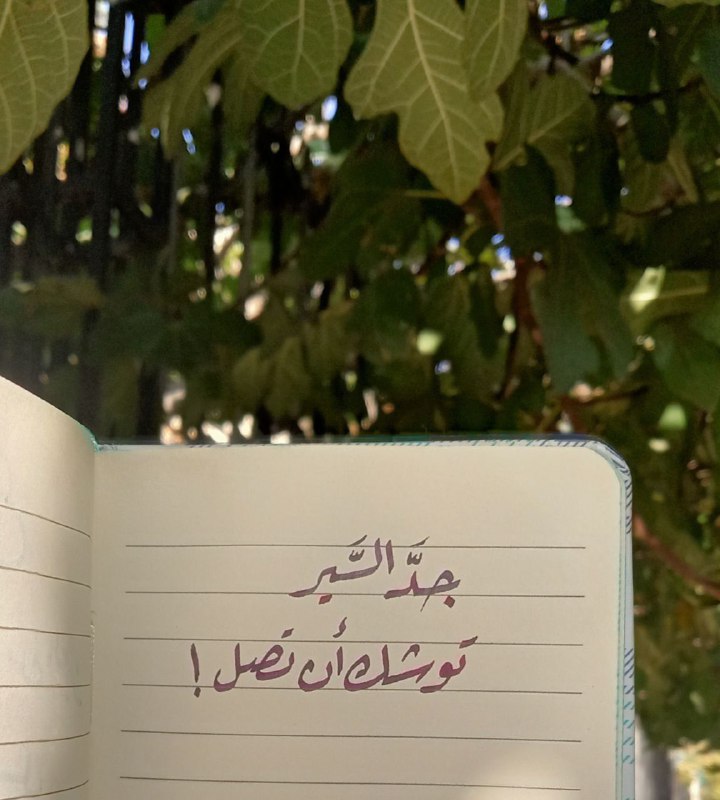 جدَّ السَّير
توشك أن تصل !